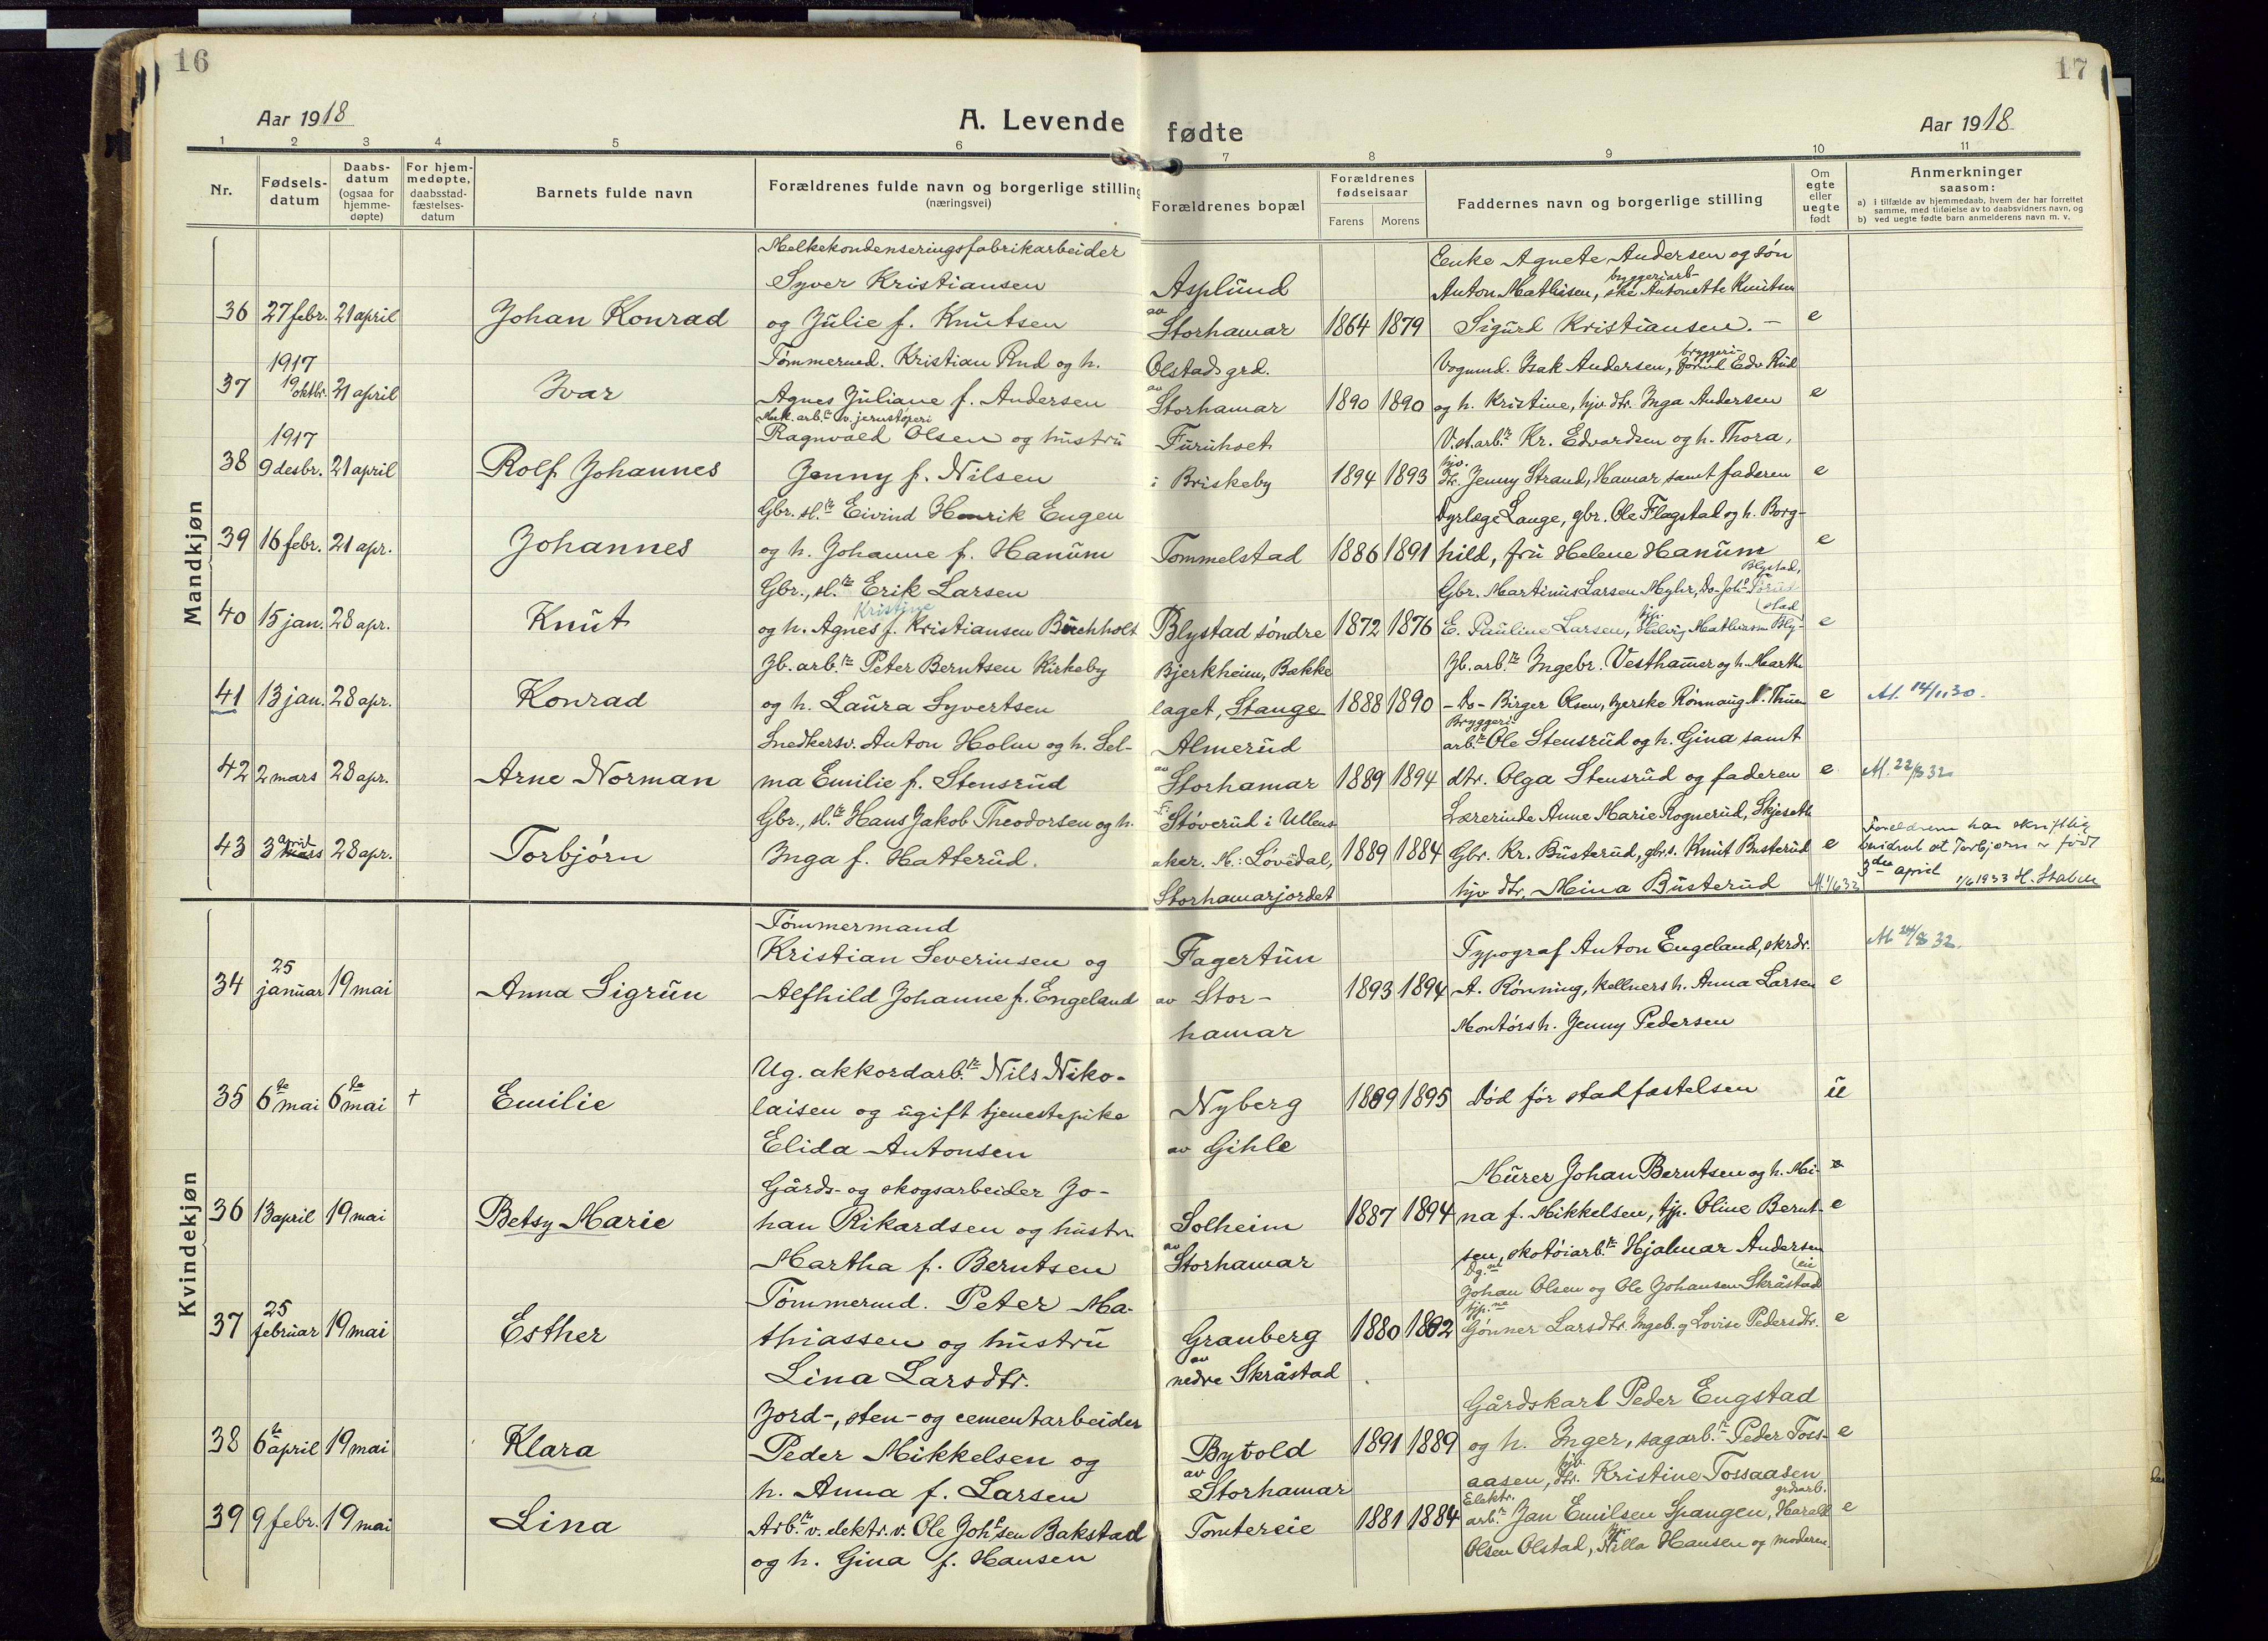 16
17
Aar 1918
A. Levende
fødte
Aar 1918
1 2 3 4 5 6 7 8 9 10 11
Nr.
Fødsels-
datum
Daabs-
datum
(ogsaa for
hjemme-
døpte)
For hjem-
medøpte,
daabsstad-
fæstelses-
datum
Barnets fulde navn
Forældrenes fulde navn og borgerlige stilling
(næringsvei)
Forældrenes bopæl
Forældrenes
fødselsaar
Farens Morens
Faddernes navn og borgerlige stilling
Om
egte
eller
uegte
født
Anmerkninger
saasom:
a) i tilfælde av hjemmedaab, hvem der har forrettet
samme, med tilføielse av to daabsvidners navn, og
b) ved uegte født barn anmelderens navn m. v.
Mandkjøn
Melkekondenseringsfabrikarbeider
Syver Kristiansen Asplund
Enke Agnete Andersen og søn
bryggeriarb-
Anton Mathisen, Antonette Knutsen
36 27 febr. 21 april Johan Konrad og Julie f. Knutsen av Storhamar 1864 1879 Sigurd Kristiansen. - e
1917
Tømmermd. Kristian Rud og h. Olstad grd. Vognmd. Isak Andersen, bryggeri- Edv. Rud
37 19 oktbr. 21 april Ivar Agnes Juliane f. Andersen av Storhamar 1890 1890 og h. Kristine, hjv. dtr. Inga Andersen e
Mek. arb.r v. jernstøperi
1917
Ragnvald Olsen og hustru Furuhset V.st.arb.r Kr. Edvardsen og h. Thora,
38 9 desbr. 21 april Rolf Johannes Jenny f. Nilsen i Briskeby 1894 1893 hjv. Jenny Strand, Hamar samt faderen e
Gbr. sl.r Eivind Henrik Engen
Dyrlæge Lange, gbr. Ole Flagstad og h. Borg-
39 16 febr. 21 apr. Johannes og h. Johanne f. Hanum Tommelstad 1886 1891 hild, fru Helene Hanum e
Gbr., sl.r Erik Larsen
Blystad,
Gbr. Martinus Larsen Myhr, Do-
Kristine
40 15 jan. 28 apr. Knut og h. Agnes f. Kristiansen Buchholt Blystad søndre 1872 1876 E. Pauline Larsen, Helvig Mathiasen Bly- stad e
Jb. arb.r Peter Berntsen Kirkeby Bjerkheim, Bække
Jb. arb.r Ingebr. Vesthammer og h. Marthe
41 13 jan. 28 apr. Konrad og h. Laura Syvertsen laget, Stange 1888 1890 - Do - Birger Olsen, Rønnaug Thuen e At. 14/11 30.
Snedkersv. Anton Holm og h. Sel- Almerud
Bryggeri-
arb.r Ole Stensrud og h. Gina samt
42 2 mars 28 apr. Arne Norman ma Emilie f. Stensrud av Storhamar 1889 1894 dtr. Olga Stensrud og faderen e At. 22/8 32
Gbr., sl.r Hans Jakob Theodorsen og h. F: Støverud i Ullens- Lærerinde Anne Marie Rognerud, Skjeseth
43 3 april mars 28 apr. Torbjørn Inga f. Hatterud. aker. M: Løvedal, 1889 1884 Gbr. Kr. Busterud, gbr.s. Knut Busterud e
Storhamarjordet hjv. dtr. Mina Busterud At. 1/6 33
Foreldrene har skriftlig
at Torbjørn er født
3dje april 1/6 1933 H. Staben
Kvindekjøn
Tømmermand
Kristian Severinsen og Fagertun Typograf Anton Engeland, skrdr. At 24/8 32.
34 25 januar 19 mai Anna Sigrun Alfhild Johanne f. Engeland av Stor- 1893 1894 A. Rønning, kellners h. Anna Larsen e
hamar Montørs h. Jenny Pedersen
Ug. akkordarb.r Nils Niko-
35 6te mai 6te mai + Emilie laisen og ugift tjenestepike Nyberg 1889 1895 Død før stadfæstelsen u
Elida Antonsen av Gihle
Gårds- og skogsarbeider Jo- Murer Johan Berntsen og h. Mi-
36 13 april 19 mai Betsy Marie han Rikardsen og hustru Solheim 1887 1894 na f. Mikkelsen, tjp. Oline Bernt- e
Martha f. Berntsen av Storhamar sen, skotøiarb.r Hjalmar Andersen
Tømmermd. Peter Ma- Johan Olsen og Ole Johansen Skråstad eie
37 25 februar 19 mai Esther thiassen og hustru Granberg 1880 1882 Gønner Larsdtr. Ingeb. og Lovise Pedersdtr. e
Lina Larsdtr. av nedre Skråstad
Jord-, sten- og cementarbeider Gårdskarl Peder Engstad
38 6te april 19 mai Klara Peder Mikkelsen og Bytvold 1891 1889 og h. Inger, sagarb.r Peder Toss- e
h. Anna f. Larsen av Storhamar aasen, hjv. dtr. Kristine Tossaasen
Elektr. grdsarb.
39 9 febr. 19 mai Lina Arb.r v. elektr.v. Ole Joh.sen Bakstad Tomtereie 1881 1884 arb.r Jan Emilsen Spangen, Harald e
og h. Gina f. Hansen Olsen Olstad, Hansen og moderen.